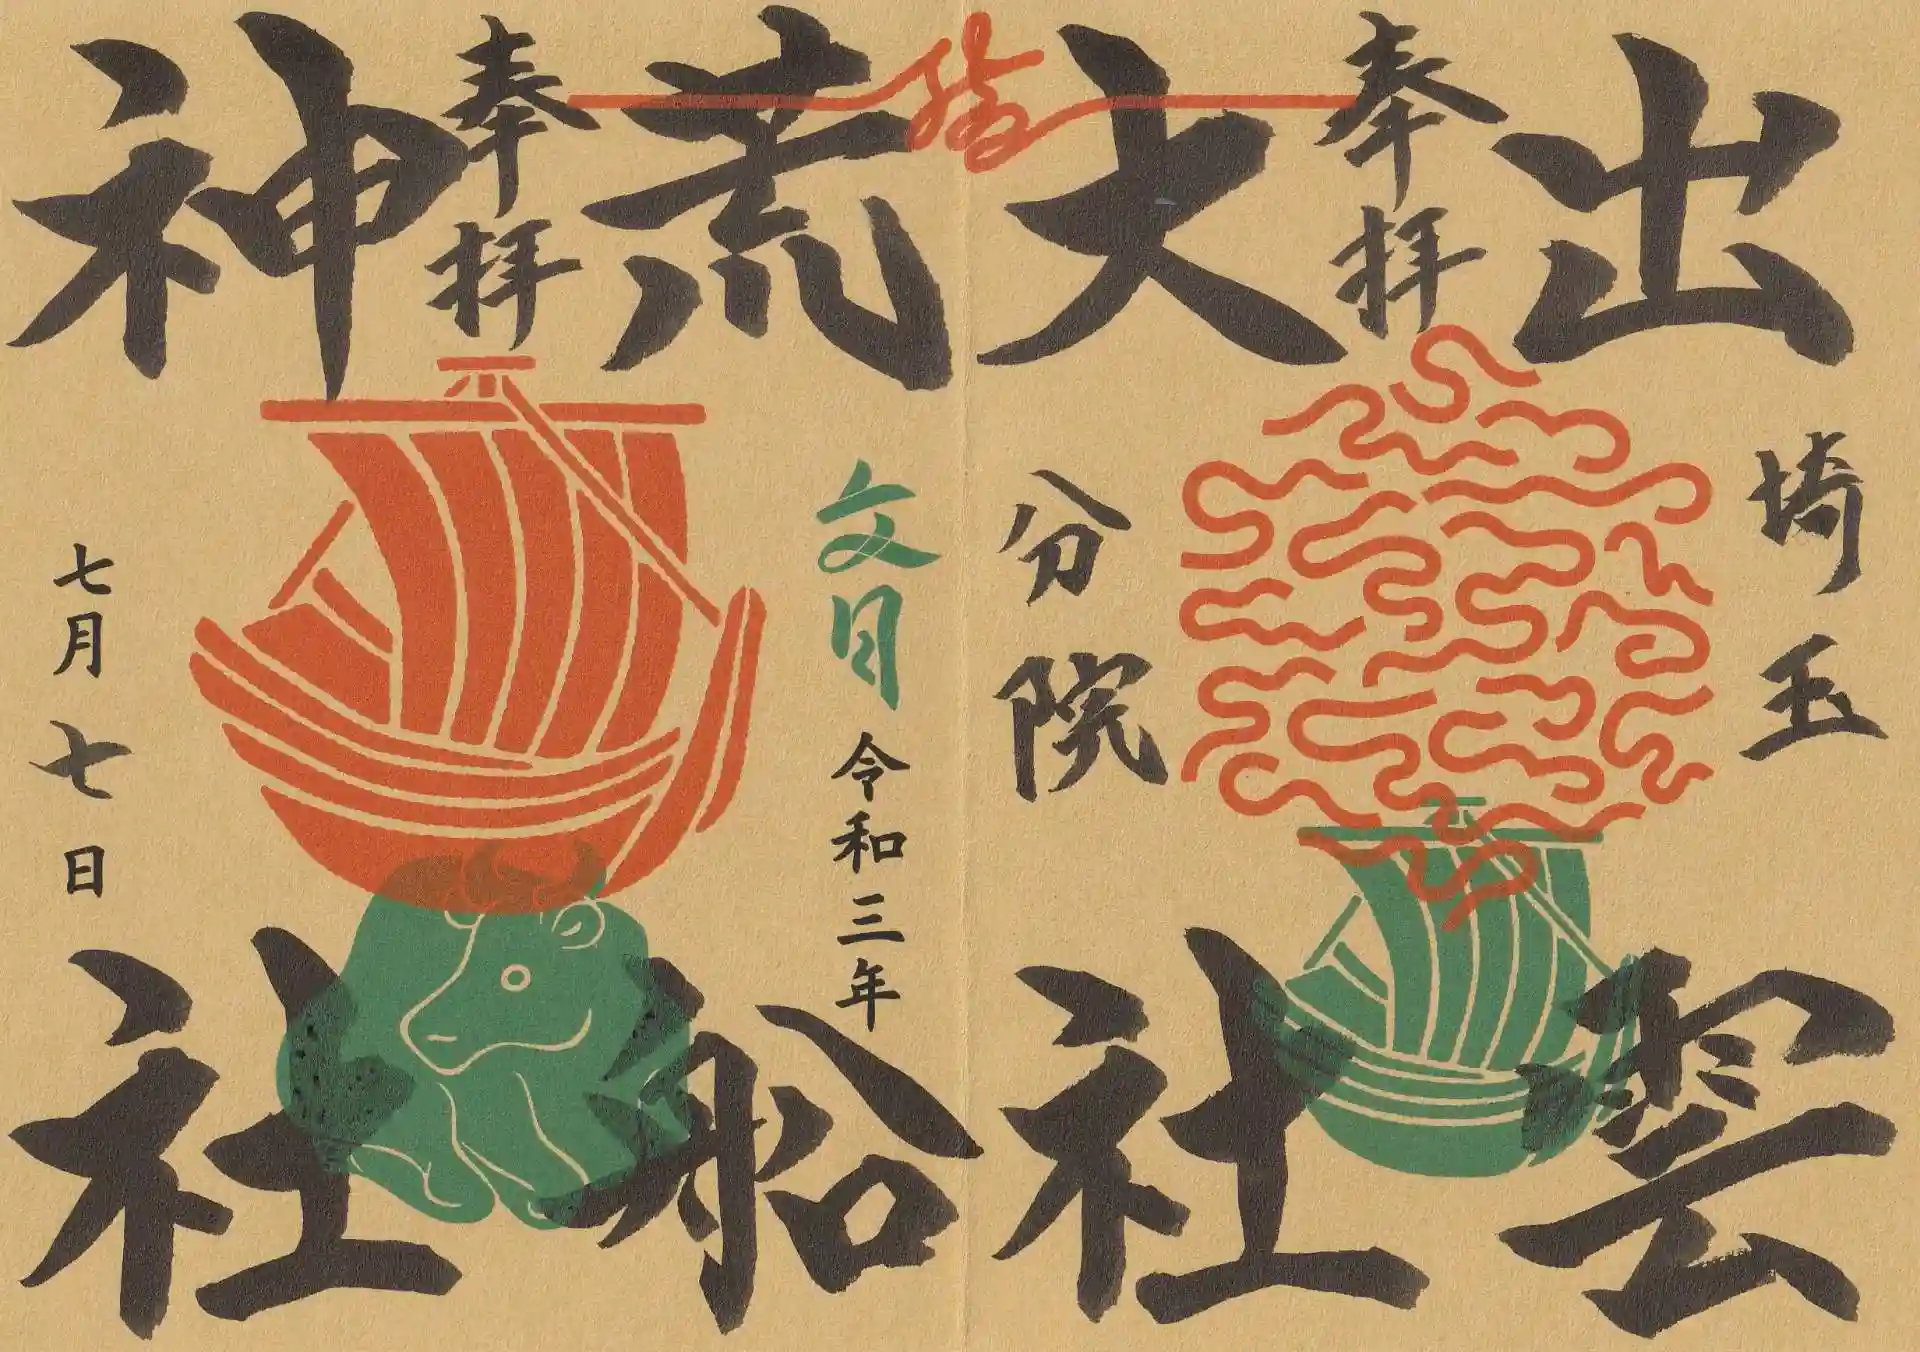 出雲
埼玉
奉拝
大社
分院
荒船
文月
令和三年
奉拝
神社
七月七日